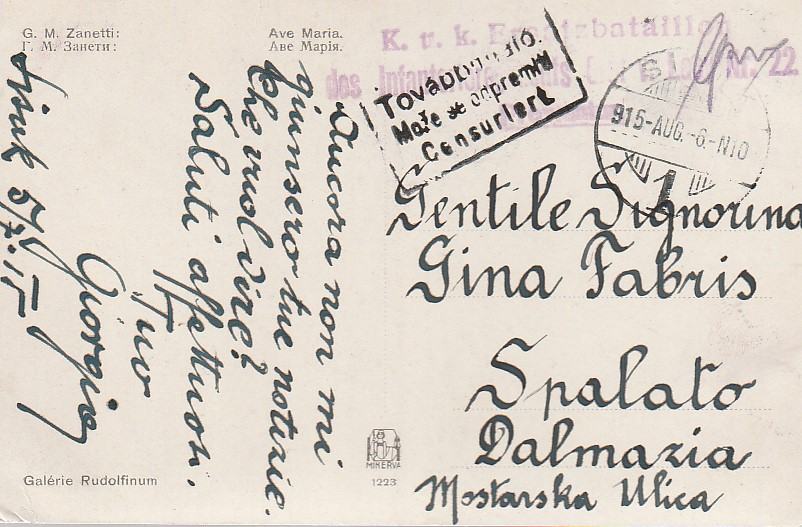 G. M. Zanetti:
Г. М. Занети:
Ave Maria.
Аве Марія.
K. u. k. Ersatzbataillon
des Infanterieregiments Nr. 22.
Továbbítható.
Može se odpremiti
Censuriert
915-AUG.-6.-N10
1
Gentile Signorina
Gina Fabris
Spalato
Dalmazia
Mostarska Ulica
Ancora non mi
giunsero tue notizie.
Che vuol dire?
Saluti affettuosi.
Tuo
Giorgio
Sisak 5/7.15
MINERVA
1223
Galérie Rudolfinum